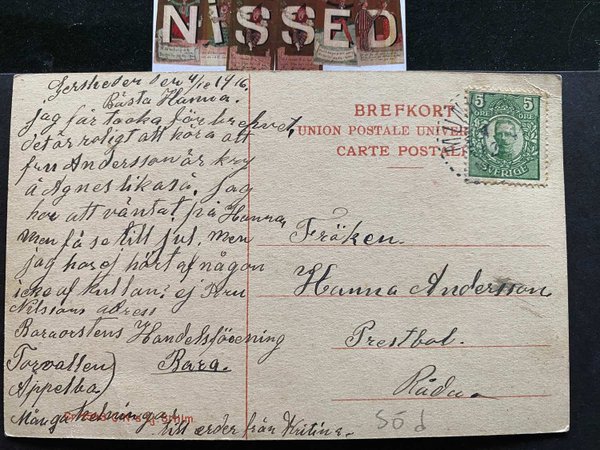 NISSED
Bästa Hanna.
jag får tacka för brefvet,
det är roligt att höra att
fru Andersson är kry
å Agnes likaså. Jag
har att väntat på Hanna,
men få se till jul. Men
jag har ej hört af någon
icke af kullan ej Fru
Nilssons adress
Handelsförening
Bara.
Appelbo
Många helningar till eder från Kristina.
BREFKORT
UNION POSTALE UNIVER
CARTE POSTALE
5 5
ÖRE ÖRE
SVERIGE
Fröken.
Hanna Andersson
Prestbol.
Råda.
Söd.